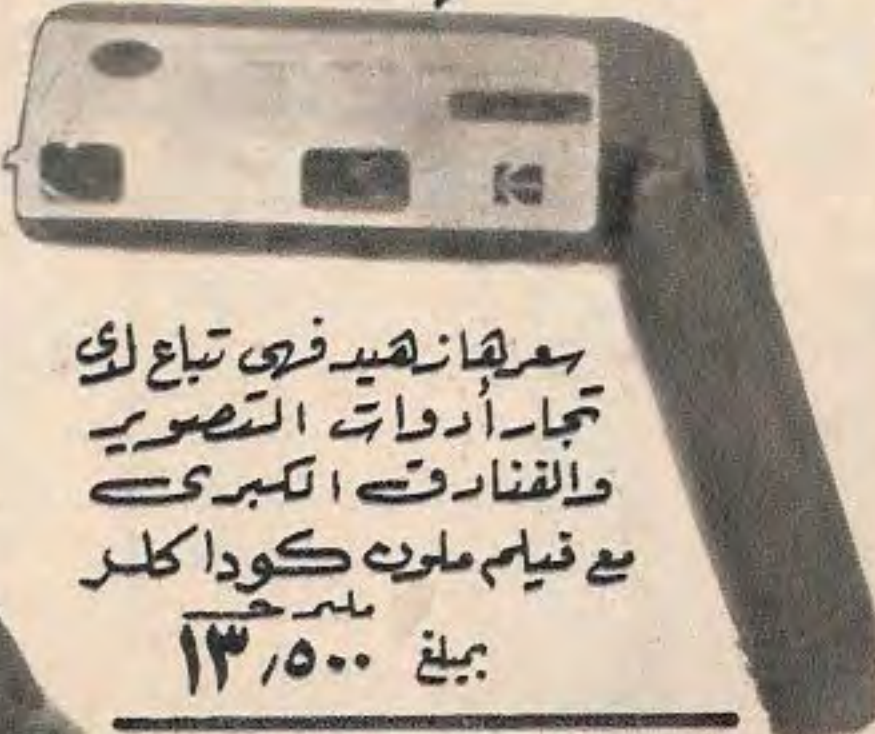 سعرها زهيد فهى تباع لدى
تجار أدوات التصوير
والفنادق الكبرى
مع فيلم ملون كوداكلر
مليم جـ
بمبلغ ١٣٫٥٠٠